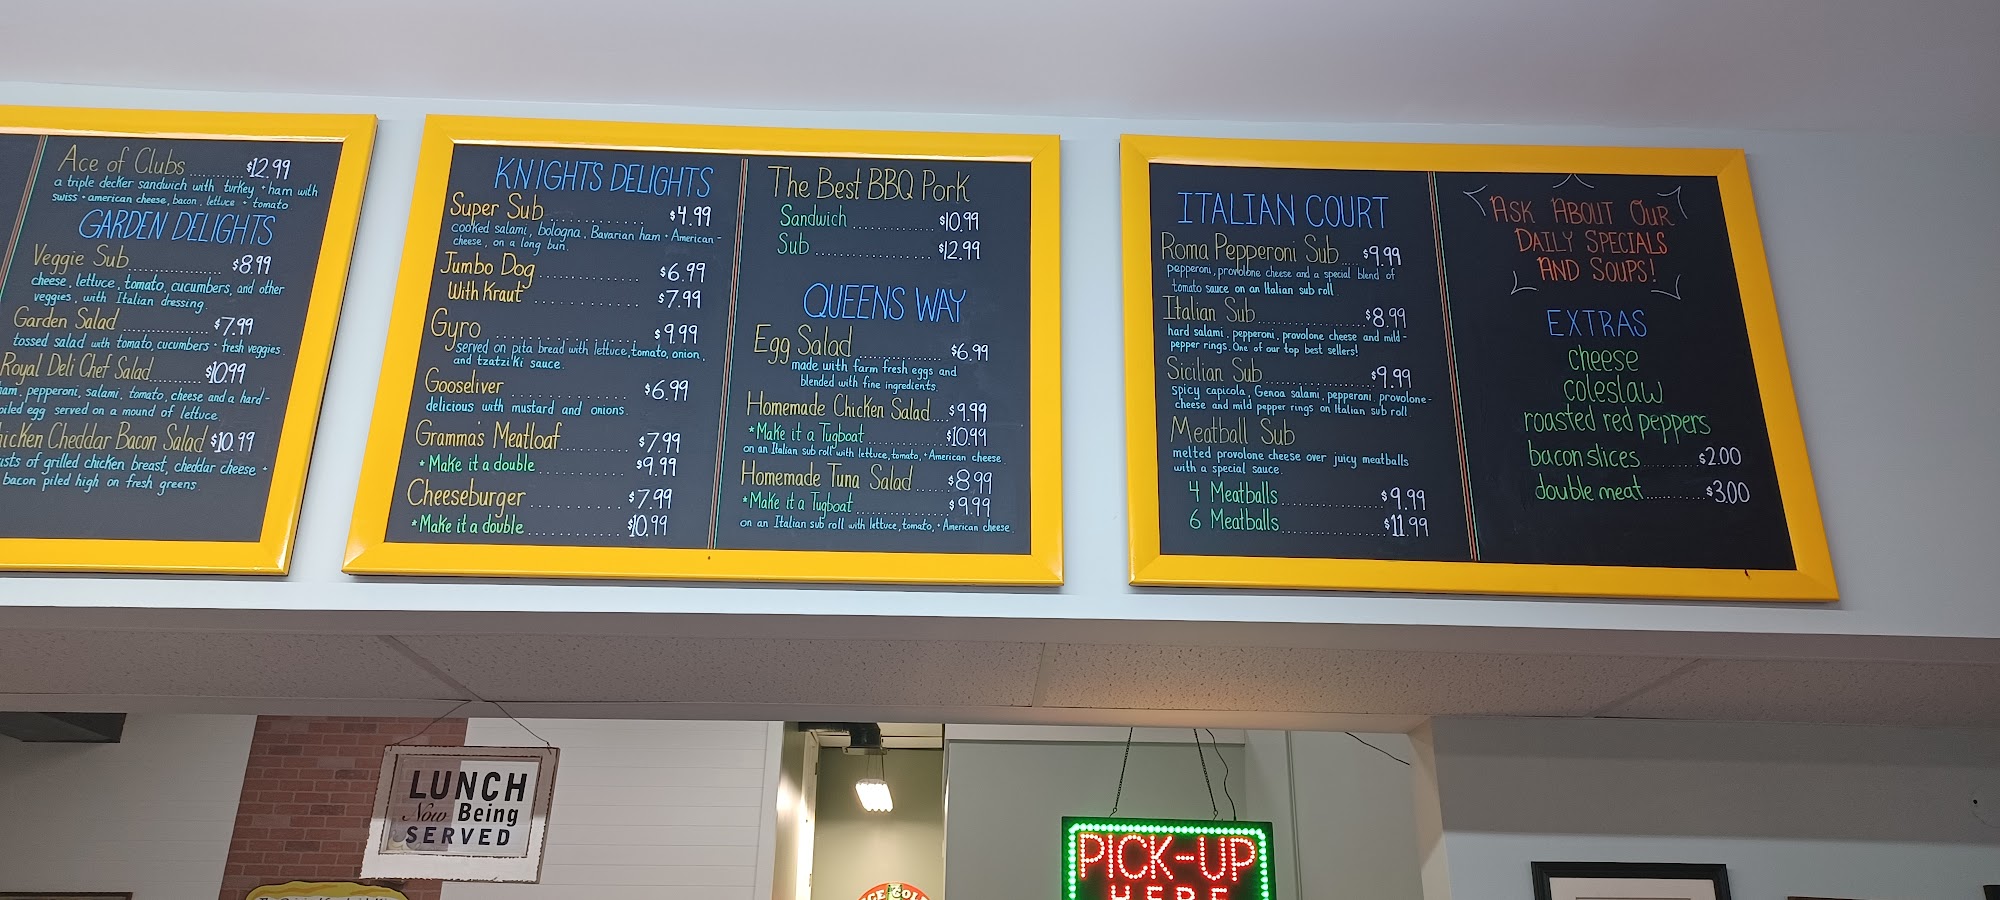 Ace of Clubs ......... $12.99
a triple decker sandwich with turkey + ham with
swiss + american cheese, bacon, lettuce + tomato
GARDEN DELIGHTS
Veggie Sub ............ $8.99
cheese, lettuce, tomato, cucumbers, and other
veggies, with Italian dressing.
Garden Salad ............ $7.99
tossed salad with tomato, cucumbers + fresh veggies.
Royal Deli Chef Salad ......... $10.99
ham, pepperoni, salami, tomato, cheese and a hard-
egg served on a mound of lettuce.
Cheddar Bacon Salad $10.99
of grilled chicken breast, cheddar cheese +
bacon piled high on fresh greens.
KNIGHT'S DELIGHTS
Super Sub ............ $4.99
cooked salami, bologna, Bavarian ham + American-
cheese, on a long bun.
Jumbo Dog ............ $6.99
With Kraut ............ $7.99
Gyro ............ $9.99
served on pita bread with lettuce, tomato, onion,
and tzatziki sauce.
Gooseliver ............ $6.99
delicious with mustard and onions.
Gramma's Meatloaf ......... $7.99
*Make it a double ............ $9.99
Cheeseburger ............ $7.99
*Make it a double ............ $10.99
The Best BBQ Pork
Sandwich ............ $10.99
Sub ............ $12.99
QUEENS WAY
Egg Salad ............ $6.99
made with farm fresh eggs and
blended with fine ingredients.
Homemade Chicken Salad ... $9.99
*Make it a Tugboat ............ $10.99
on an Italian sub roll with lettuce, tomato, + American cheese.
Homemade Tuna Salad ..... $8.99
*Make it a Tugboat ............ $9.99
on an Italian sub roll with lettuce, tomato, + American cheese.
ITALIAN COURT
Roma Pepperoni Sub .... $9.99
pepperoni, provolone cheese and a special blend of
tomato sauce on an Italian sub roll.
Italian Sub ............ $8.99
hard salami, pepperoni, provolone cheese and mild-
pepper rings. One of our top best sellers!
Sicilian Sub ............ $9.99
spicy capicola, Genoa salami, pepperoni, provolone-
cheese and mild pepper rings on Italian sub roll.
Meatball Sub
melted provolone cheese over juicy meatballs
with a special sauce.
4 Meatballs ............ $9.99
6 Meatballs ............ $11.99
ASK ABOUT OUR
DAILY SPECIALS
AND SOUPS!
EXTRAS
cheese
coleslaw
roasted red peppers
bacon slices ......... $2.00
double meat ......... $3.00
LUNCH
Now Being
SERVED
PICK-UP
HERE